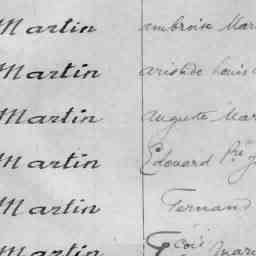 Martin ambroise Mar
Martin aristide Louis
Martin auguste Mar
Martin Edouard
Martin Fernand
Martin Fçois Mari